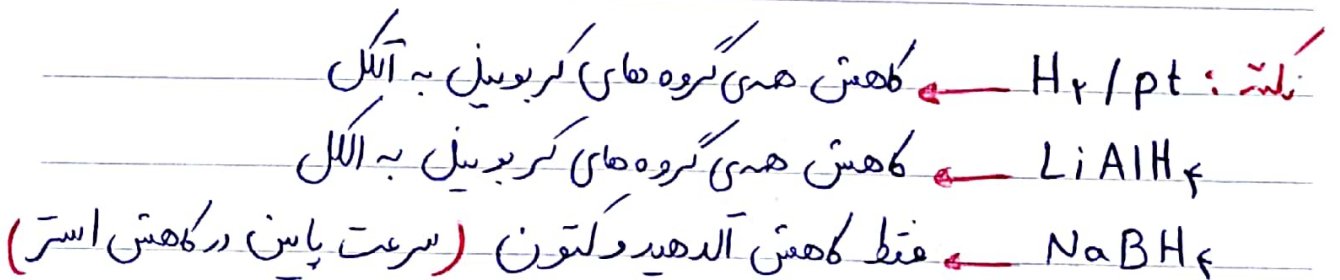 نکته : H۲/pt ← کاهش همه‌ی گروه های کربونیل به آلکل
LiAlH۴ ← کاهش همه‌ی گروه های کربونیل به الکل
NaBH۴ ← فقط کاهش آلدهید و کتون (سرعت پایین در کاهش استر)